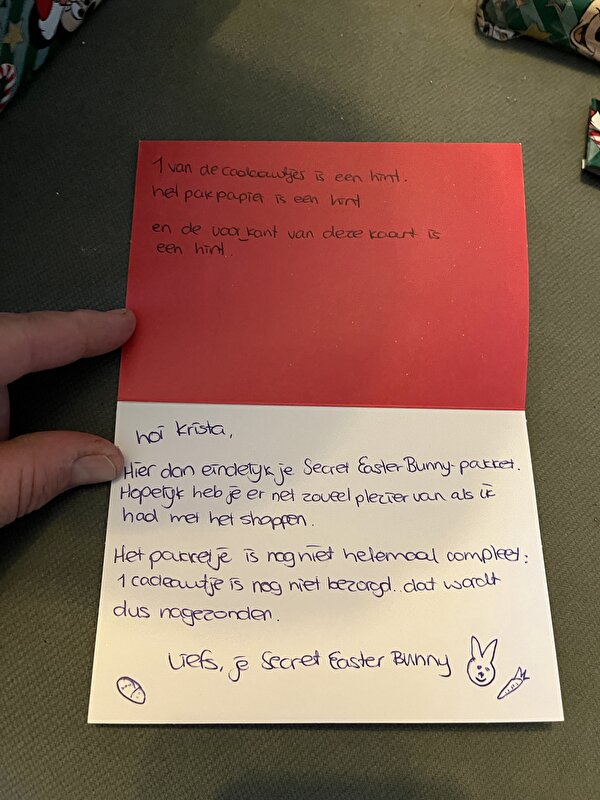 1 van de cadeautjes is een hint.
het pakpapier is een hint
en de voorkant van deze kaart is
een hint.
hoi Krista,
Hier dan eindelijk je Secret Easter Bunny-pakket.
Hopelijk heb je er net zoveel plezier van als ik
had met het shoppen.
Het pakketje is nog niet helemaal compleet:
1 cadeautje is nog niet bezorgd.. dat wordt
dus nagezonden.
Liefs, je Secret Easter Bunny